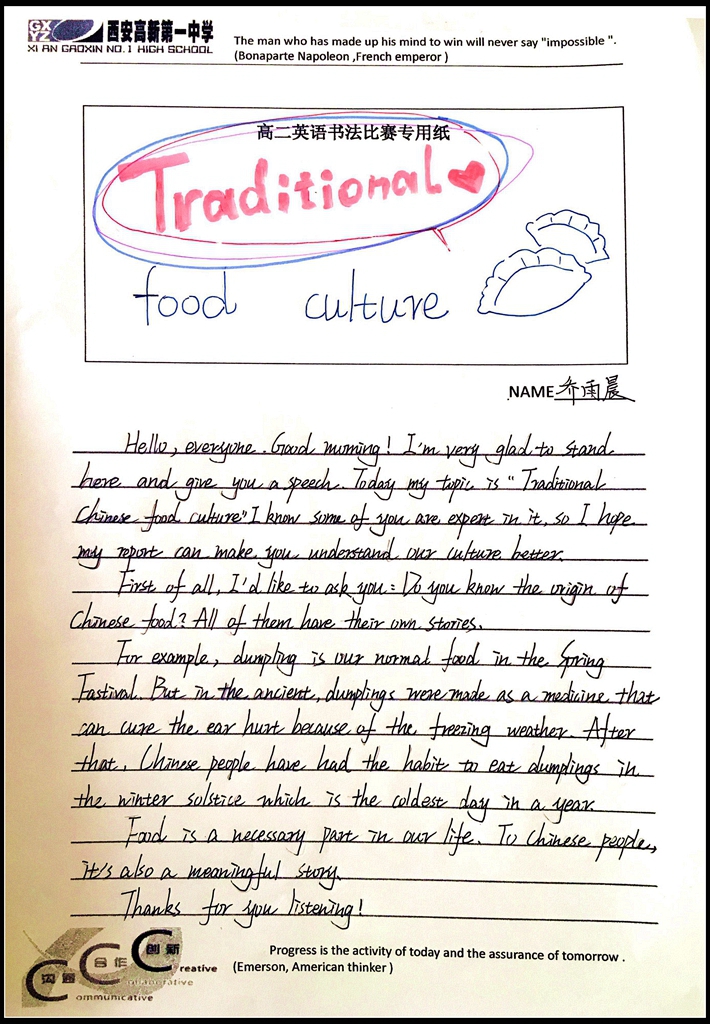 GX
YZ
西安高新第一中学
XI AN GAOXIN NO.1 HIGH SCHOOL
The man who has made up his mind to win will never say "impossible ".
(Bonaparte Napoleon ,French emperor )
高二英语书法比赛专用纸
Traditional
food culture
NAME 乔雨晨
Hello, everyone. Good morning! I'm very glad to stand
here and give you a speech. Today my topic is "Traditional
Chinese food culture" I know some of you are expert in it, so I hope
my report can make you understand our culture better.
First of all, I'd like to ask you: Do you know the origin of
Chinese food? All of them have their own stories.
For example, dumpling is our normal food in the Spring
Fastival. But in the ancient, dumplings were made as a medicine that
can cure the ear hurt because of the freezing weather. After
that, Chinese people have had the habit to eat dumplings in
the winter solstice which is the coldest day in a year.
Food is a necessary part in our life. To Chinese people,
it's also a meaningful story.
Thanks for you listening!
沟通 合作 创新
Creative
Collaborative
Communicative
Progress is the activity of today and the assurance of tomorrow .
(Emerson, American thinker )